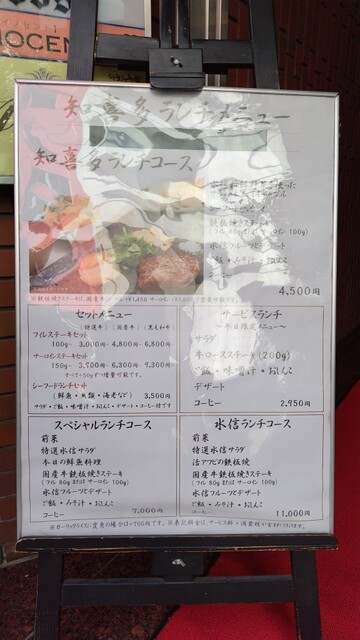 知喜多ランチメニュー
知喜多ランチコース
国産牛鉄板焼きステーキ
(フィレ 80g またはサーロイン 100g)
水信フルーツとデザート
ご飯・みそ汁・おしんこ
コーヒー
4,500円
セットメニュー
(特選牛) (国産牛) (黒毛和牛)
フィレステーキセット
100g- 3,000円- 4,800円- 6,800円
サーロインステーキセット
150g- 3,900円- 6,300円- 9,300円
すべて+50gずつ増量可能です。
シーフードランチセット
(鮮魚・貝類・海老など) 3,500円
サラダ・ご飯・味噌汁・おしんこ・デザート・コーヒー付です
サービスランチ
〜平日限定メニュー〜
サラダ
牛ロースステーキ (200g)
ご飯・味噌汁・おしんこ
デザート
コーヒー 2,950円
スペシャルランチコース
前菜
特選水信サラダ
本日の鮮魚料理
国産牛鉄板焼きステーキ
(フィレ 80g または サーロイン 100g)
水信フルーツとデザート
ご飯・みそ汁・おしんこ
コーヒー 7,000円
水信ランチコース
前菜
特選水信サラダ
活アワビの鉄板焼
国産牛鉄板焼きステーキ
(フィレ 80g または サーロイン 100g)
水信フルーツとデザート
ご飯・みそ汁・おしんこ
コーヒー 11,000円
※ガーリックライスに変更の場合は+700円です。